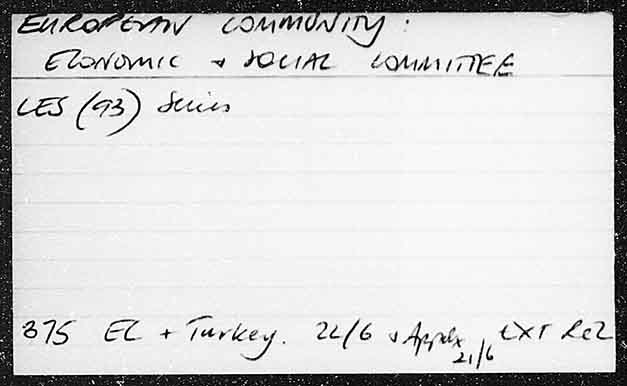 EUROPEAN COMMUNITY:
ECONOMIC + SOCIAL COMMITTEE
CES (93) Series
375 EC + Turkey. 22/6 + Appdx 21/6 EXT REL